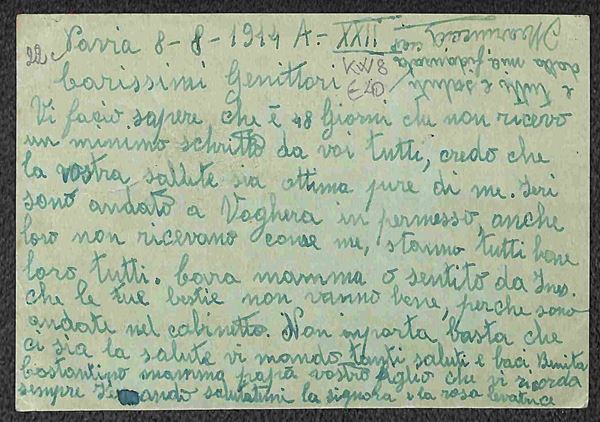 Pavia 8-8-1944 A.- XXII
22.
Carissimi Genittori
Vi facio sapere che è 18 Giorni che non ricevo
un minimo schritto da voi tutti, credo che
la vostra sallute sia ottima pure di me. Ieri
sono andato a Voghera in permesso, anche
loro non ricevano come me, stanno tutti bene
loro tutti. Cara mamma o sentito da Ines.
che le tue bestie non vanno bene, perche sono
andate nel cabinetto. Non inporta, basta che
ci sia la salute vi mando tanti saluti e baci Benita
Costantino mamma papà vostro figlio che si ricorda
sempre salutatimi la signora e la rosa levatrice
e tutti e saluti
dalla mia fidanzata